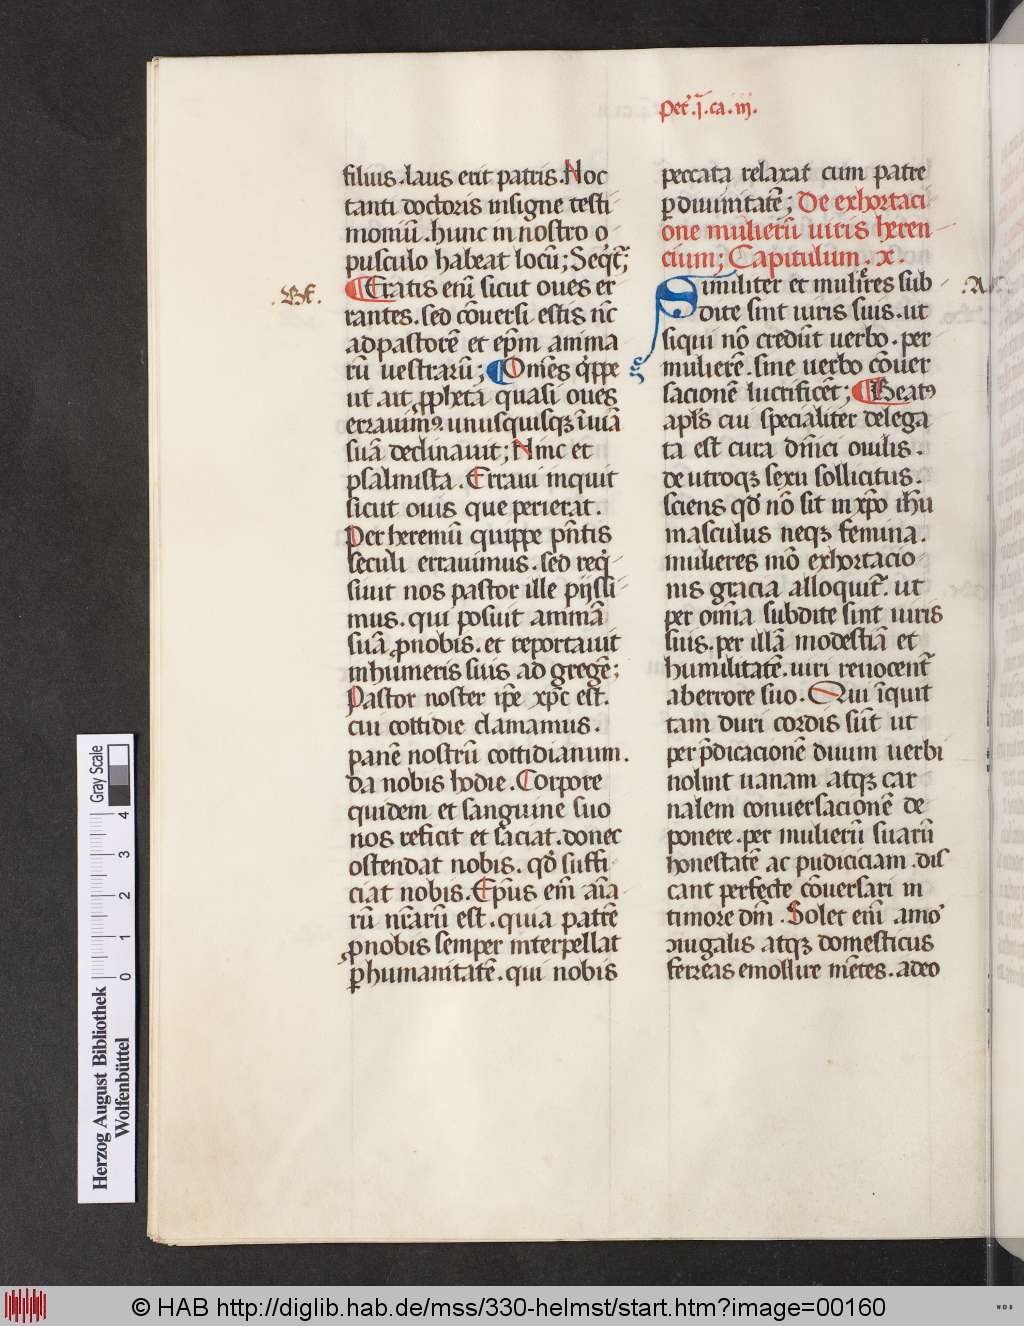 Pet̛ .j̄. ca. iij.
filius. laus erit patris. Noc
tanti doctoris insigne testi-
moniū. hunc in nostro o
pusculo habeat locū; Seqt̛;
.Bf.
Eratis eni̅ sicut oues er
rantes. sed cōuersi estis nc̄
ad pastorē et ep̄m anima
rū uestrarū; Omēs q̛ppe
ut ait ꝓpheta quasi oues
errauimꝰ unusquisqꝫ ī uiā
suā declinauit; Hinc et
psalmista. Erraui inquit
sicut ouis que perierat.
Per heremū quippe pn̄tis
seculi errauimus. sed req̛-
siuit nos pastor ille pijssi-
mus. qui posuit animā
suā ꝓ nobis. et reportauit
in humeris suis ad gregē;
Pastor noster ip̄e xp̄c est.
cui cottidie clamamus.
panē nostrū cottidianum.
da nobis hodie. Corpore
quidem et sanguine suo
nos reficit et saciat. donec
ostendat nobis. qd̛ suffi-
ciat nobis. Ep̄us em̄ aīa-
rū nr̄arū est. quia patrē
ꝓ nobis semper interpellat
ꝑ humanitatē. qui nobis
peccata relaxat cum patre
ꝑ diuinitatē; De exhortaci
one mulierū uiris heren-
cium; Capitulum. x.
Similiter et muliēres sub-
.A.
dite sint uiris suis. ut
si qui nō credūt uerbo. per
mulierē. sine uerbo cōuer
sacionē lucrificēt; Beatꝰ
apl̄s cui specialiter delega
ta est cura dn̄ici ouilis.
de utroqꝫ sexu sollicitus.
sciens qd̛ nō sit in xp̄o ih̄u
masculus neqꝫ femina.
mulieres mō exhortacio-
nis gracia alloquit̛. ut
per omīa subdite sint uiris
suis. per illā modestiā et
humilitatē. uiri reuocent̛
ab errore suo. Qui īquit
tam duri cordis sūt ut
per p̄dicacionē diuini uerbi
nolint uanam atqꝫ car
nalem conuersacionē de
ponere. per mulierū suarū
honestatē ac pudiciciam. dis
cant perfecte cōuersari in
timore dn̄i. Solet eni̅ amo᷑
ↄiugalis atqꝫ domesticus
ferreas emollire mētes. adeo
Herzog August Bibliothek
Wolfenbüttel
0 1 2 3 4
Gray Scale
© HAB http://diglib.hab.de/mss/330-helmst/start.htm?image=00160